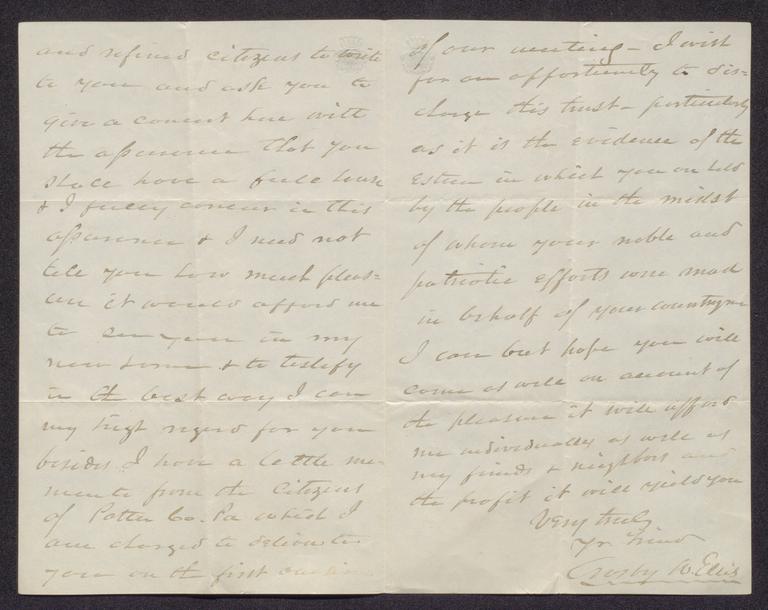 and refined citizens to write
to you and ask you to
give a concert here with
the assurance that you
shall have a full house
& I fully concur in this
assurance & I need not
tell you how much pleas-
ure it would afford me
to see you in my
new home & to testify
in the best way I can
my high regard for you
besides I have a little me-
mento from the Citizens
of Potter Co. Pa which I
am charged to deliver to
you on the first occasion
of our meeting – I wish
for an opportunity to dis=
charge this trust – particularly
as it is the evidence of the
Esteem in which you are held
by the people in the midst
of whom your noble and
patriotic efforts were made
in behalf of your countrymen
I can but hope you will
come as well on account of
the pleasure it will afford
me individually as well as
my friends & neighbors and
the profit it will yield you
Very truly
Yr friend
W. Ellis